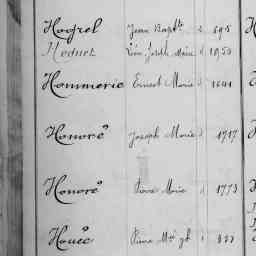 Hogrel Jean Bapte d 695
Hednet Léon Joseph Marie d 1050
Hommerie Ernest Marie d 1641
Honoré Joseph Marie d 1717
Honoré Pierre Marie d 1773
Houée Pierre Mie d 233